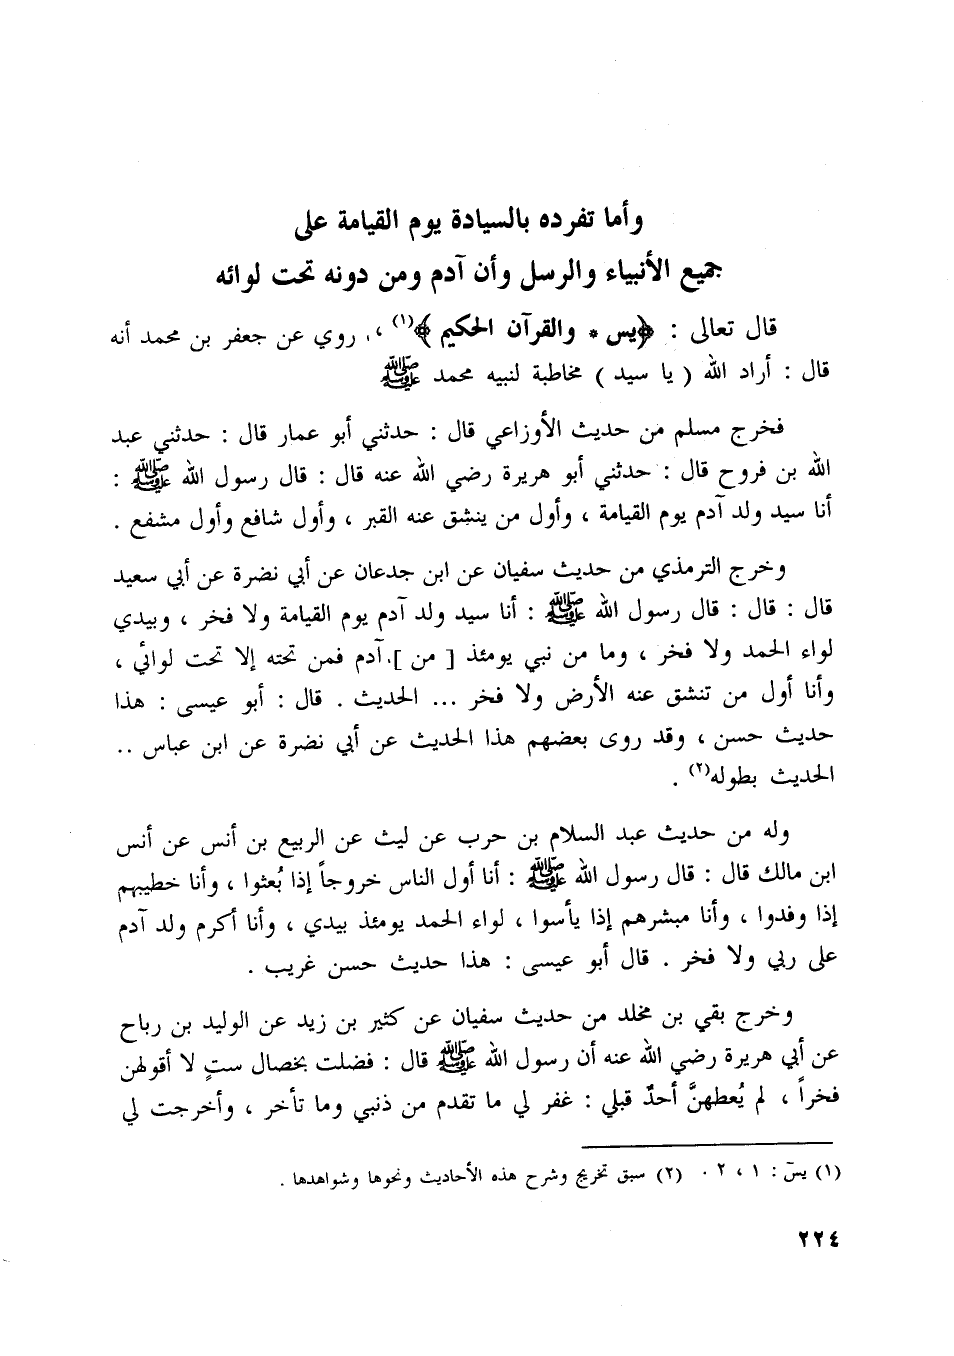 وأما تفرده بالسيادة يوم القيامة على
جميع الأنبياء والرسل وأن آدم ومن دونه تحت لوائه
قال تعالى : ﴿يس * والقرآن الحكيم﴾(١) ،. روي عن جعفر بن محمد أنه
قال : أراد الله ( يا سيد ) مخاطبة لنبيه محمد ﷺ
فخرج مسلم من حديث الأوزاعي قال : حدثني أبو عمار قال : حدثني عبد
الله بن فروح قال : حدثني أبو هريرة رضي الله عنه قال : قال رسول الله ﷺ :
أنا سيد ولد آدم يوم القيامة ، وأول من ينشق عنه القبر ، وأول شافع وأول مشفع .
وخرج الترمذي من حديث سفيان عن ابن جدعان عن أبي نضرة عن أبي سعيد
قال : قال : قال رسول الله ﷺ : أنا سيد ولد آدم يوم القيامة ولا فخر ، وبيدي
لواء الحمد ولا فخر ، وما من نبي يومئذ [ من ] آدم فمن تحته إلا تحت لوائي ،
وأنا أول من تنشق عنه الأرض ولا فخر ... الحديث . قال : أبو عيسى : هذا
حديث حسن ، وقد روى بعضهم هذا الحديث عن أبي نضرة عن ابن عباس ..
الحديث بطوله(٢) .
وله من حديث عبد السلام بن حرب عن ليث عن الربيع بن أنس عن أنس
ابن مالك قال : قال رسول الله ﷺ : أنا أول الناس خروجاً إذا بُعثوا ، وأنا خطيبهم
إذا وفدوا ، وأنا مبشرهم إذا يأسوا ، لواء الحمد يومئذ بيدي ، وأنا أكرم ولد آدم
على ربي ولا فخر . قال أبو عيسى : هذا حديث حسن غريب .
وخرج بقي بن مخلد من حديث سفيان عن كثير بن زيد عن الوليد بن رباح
عن أبي هريرة رضي الله عنه أن رسول الله ﷺ قال : فضلت بخصال ستٍ لا أقولهن
فخراً ، لم يُعطهنَّ أحدٌ قبلي : غفر لي ما تقدم من ذنبي وما تأخر ، وأخرجت لي
(١) يسٓ : ١ ، ٢ . (٢) سبق تخريج وشرح هذه الأحاديث ونحوها وشواهدها .
٢٢٤